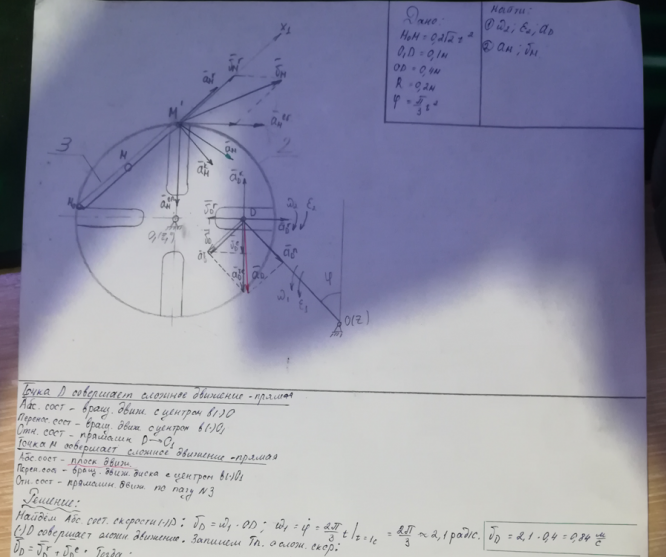 Дано:
M₀M = 0,2√2 t²
O₁D = 0,1м
OD = 0,4м
R = 0,2м
φ = π/3 t²
Найти:
① ω₂; ε₂; a_D
② a_M; v_M
x₁
M'
3
M
2
D
ω₂
ε₂
φ
ω₁
ε₁
O(z)
Точка D совершает сложное движение - прямая
Абс. сост - вращ. движ. с центром в (·) O
Перенос. сост - вращ. движ. с центром в (·) O₁
Отн. сост - прямолин D → O₁
Точка M совершает сложное движение - прямая
Абс. сост - плоск движ.
Перен. сост - вращ. движ. диска с центром в (·) O₁
Отн. сост - прямолин. движ. по пазу N3
Решение:
Найдем Абс. сост. скорости (·) D: v̄_D = ω₁ · OD; ω₁ = φ̇ = 2π/3 t |t=1c = 2π/3 ≈ 2,1 рад/с. v̄_D = 2,1 · 0,4 = 0,84 м/с
(·) D совершает сложн движение. Запишем Т. о слож. скор:
v̄_D = v̄_D^r + v̄_D^e. Тогда: